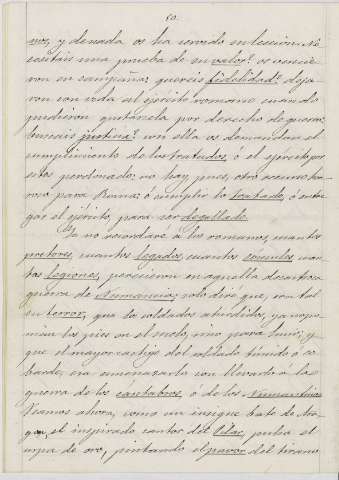 50.
nos, y de nada os ha servido su leccion. Ne
cesitais una prueba de su valor? os vencie
ron en campaña: quereis fidelidad? deja
ron con vida al ejército romano cuando
pudieron quitársela por derecho de guerra:
deseais justicia? con ella os demandan el
cumplimiento de los tratados, ó el ejército por
estos perdonado: no hay, pues, otro
para Roma: ó cumplir lo tratado, ó entre
gar el ejército, para ser degollado.
Ya no recordaré á los romanos, cuantos
pretores, cuantos legados, cuantos cónsules, cuan
tas legiones, perecieron en aquella desastrosa
guerra de Numancia; solo diré que, con tal
su terror, que los soldados aturdidos, ya no po
nian los pies en el suelo, sino para huir; y
que el mayor castigo del soldado tímido ó co
barde, era amenazarlo con llevarlo á la
guerra de los cántabros, ó de los Numantinos.
Veamos ahora, como un insigne bate de Ara
gon, el inspirado cantor del Pilar, pulsa el
arpa de oro, pintando el pavor del tirano